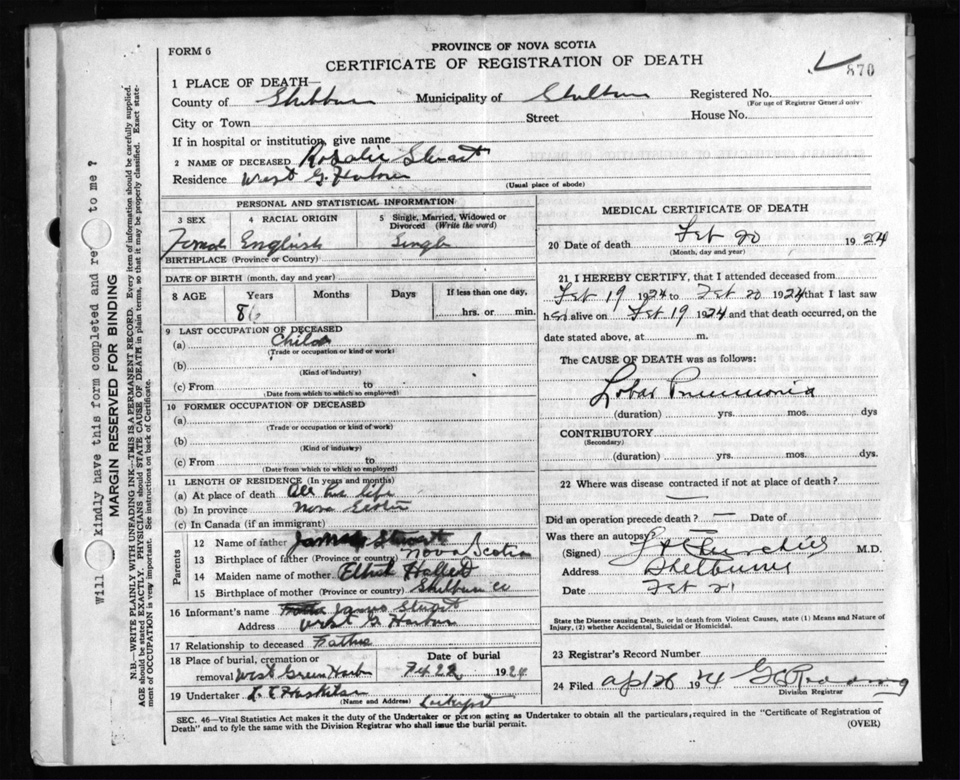 FORM 6
PROVINCE OF NOVA SCOTIA
CERTIFICATE OF REGISTRATION OF DEATH
870
1 PLACE OF DEATH—
County of Shelburne Municipality of Shelburne Registered No.
(For use of Registrar General only)
City or Town Street House No.
If in hospital or institution, give name
2 NAME OF DECEASED Rosalie Stuart
Residence West G. Harbor
(Usual place of abode)
PERSONAL AND STATISTICAL INFORMATION
3 SEX 4 RACIAL ORIGIN 5 Single, Married, Widowed or Divorced (Write the word)
Female English Single
BIRTHPLACE (Province or Country)
DATE OF BIRTH (month, day and year)
8 AGE Years Months Days If less than one day,
hrs. or min.
9 LAST OCCUPATION OF DECEASED
(a) Child
(Trade or occupation or kind or work)
(b)
(Kind of industry)
(c) From to
(Date from which to which so employed)
10 FORMER OCCUPATION OF DECEASED
(a)
(Trade or occupation or kind of work)
(b)
(Kind of industry)
(c) From to
(Date from which to which so employed)
11 LENGTH OF RESIDENCE (In years and months)
(a) At place of death All her life
(b) In province Nova Scotia
(c) In Canada (if an immigrant)
Parents
12 Name of father James Stuart
13 Birthplace of father (Province or country) Nova Scotia
14 Maiden name of mother
15 Birthplace of mother (Province or country) Shelburne Co
16 Informant's name James Stuart
Address West G. Harbor
17 Relationship to deceased Father
18 Place of burial, cremation or removal West Green Harbor
Date of burial 22 1924
19 Undertaker
(Name and Address) Lockeport
MEDICAL CERTIFICATE OF DEATH
20 Date of death Feb 20 1924
(Month, day and year)
21 I HEREBY CERTIFY, that I attended deceased from
Feb 19 1924 to Feb 20 1924 that I last saw
her alive on Feb 19 1924 and that death occurred, on the
date stated above, at m.
The CAUSE OF DEATH was as follows:
Lobar Pneumonia
(duration) yrs. mos. dys
CONTRIBUTORY
(Secondary)
(duration) yrs. mos. dys.
22 Where was disease contracted if not at place of death?
—
Did an operation precede death? — Date of
Was there an autopsy?
(Signed) Churchill M.D.
Address Shelburne
Date Feb 21
State the Disease causing Death, or in death from Violent Causes, state (1) Means and Nature of
Injury, (2) whether Accidental, Suicidal or Homicidal.
23 Registrar's Record Number
24 Filed Apl 26 1924
Division Registrar
SEC. 46—Vital Statistics Act makes it the duty of the Undertaker or person acting as Undertaker to obtain all the particulars, required in the "Certificate of Registration of
Death" and to fyle the same with the Division Registrar who shall issue the burial permit.
(OVER)
Will kindly have this form completed and to me ?
MARGIN RESERVED FOR BINDING
N.B.—WRITE PLAINLY WITH UNFADING INK—THIS IS A PERMANENT RECORD. Every item of information should be carefully supplied.
AGE should be stated EXACTLY. PHYSICIANS should STATE CAUSE OF DEATH in plain terms, so that it may be properly classified. Exact state-
ment of OCCUPATION is very important. See instructions on back of Certificate.